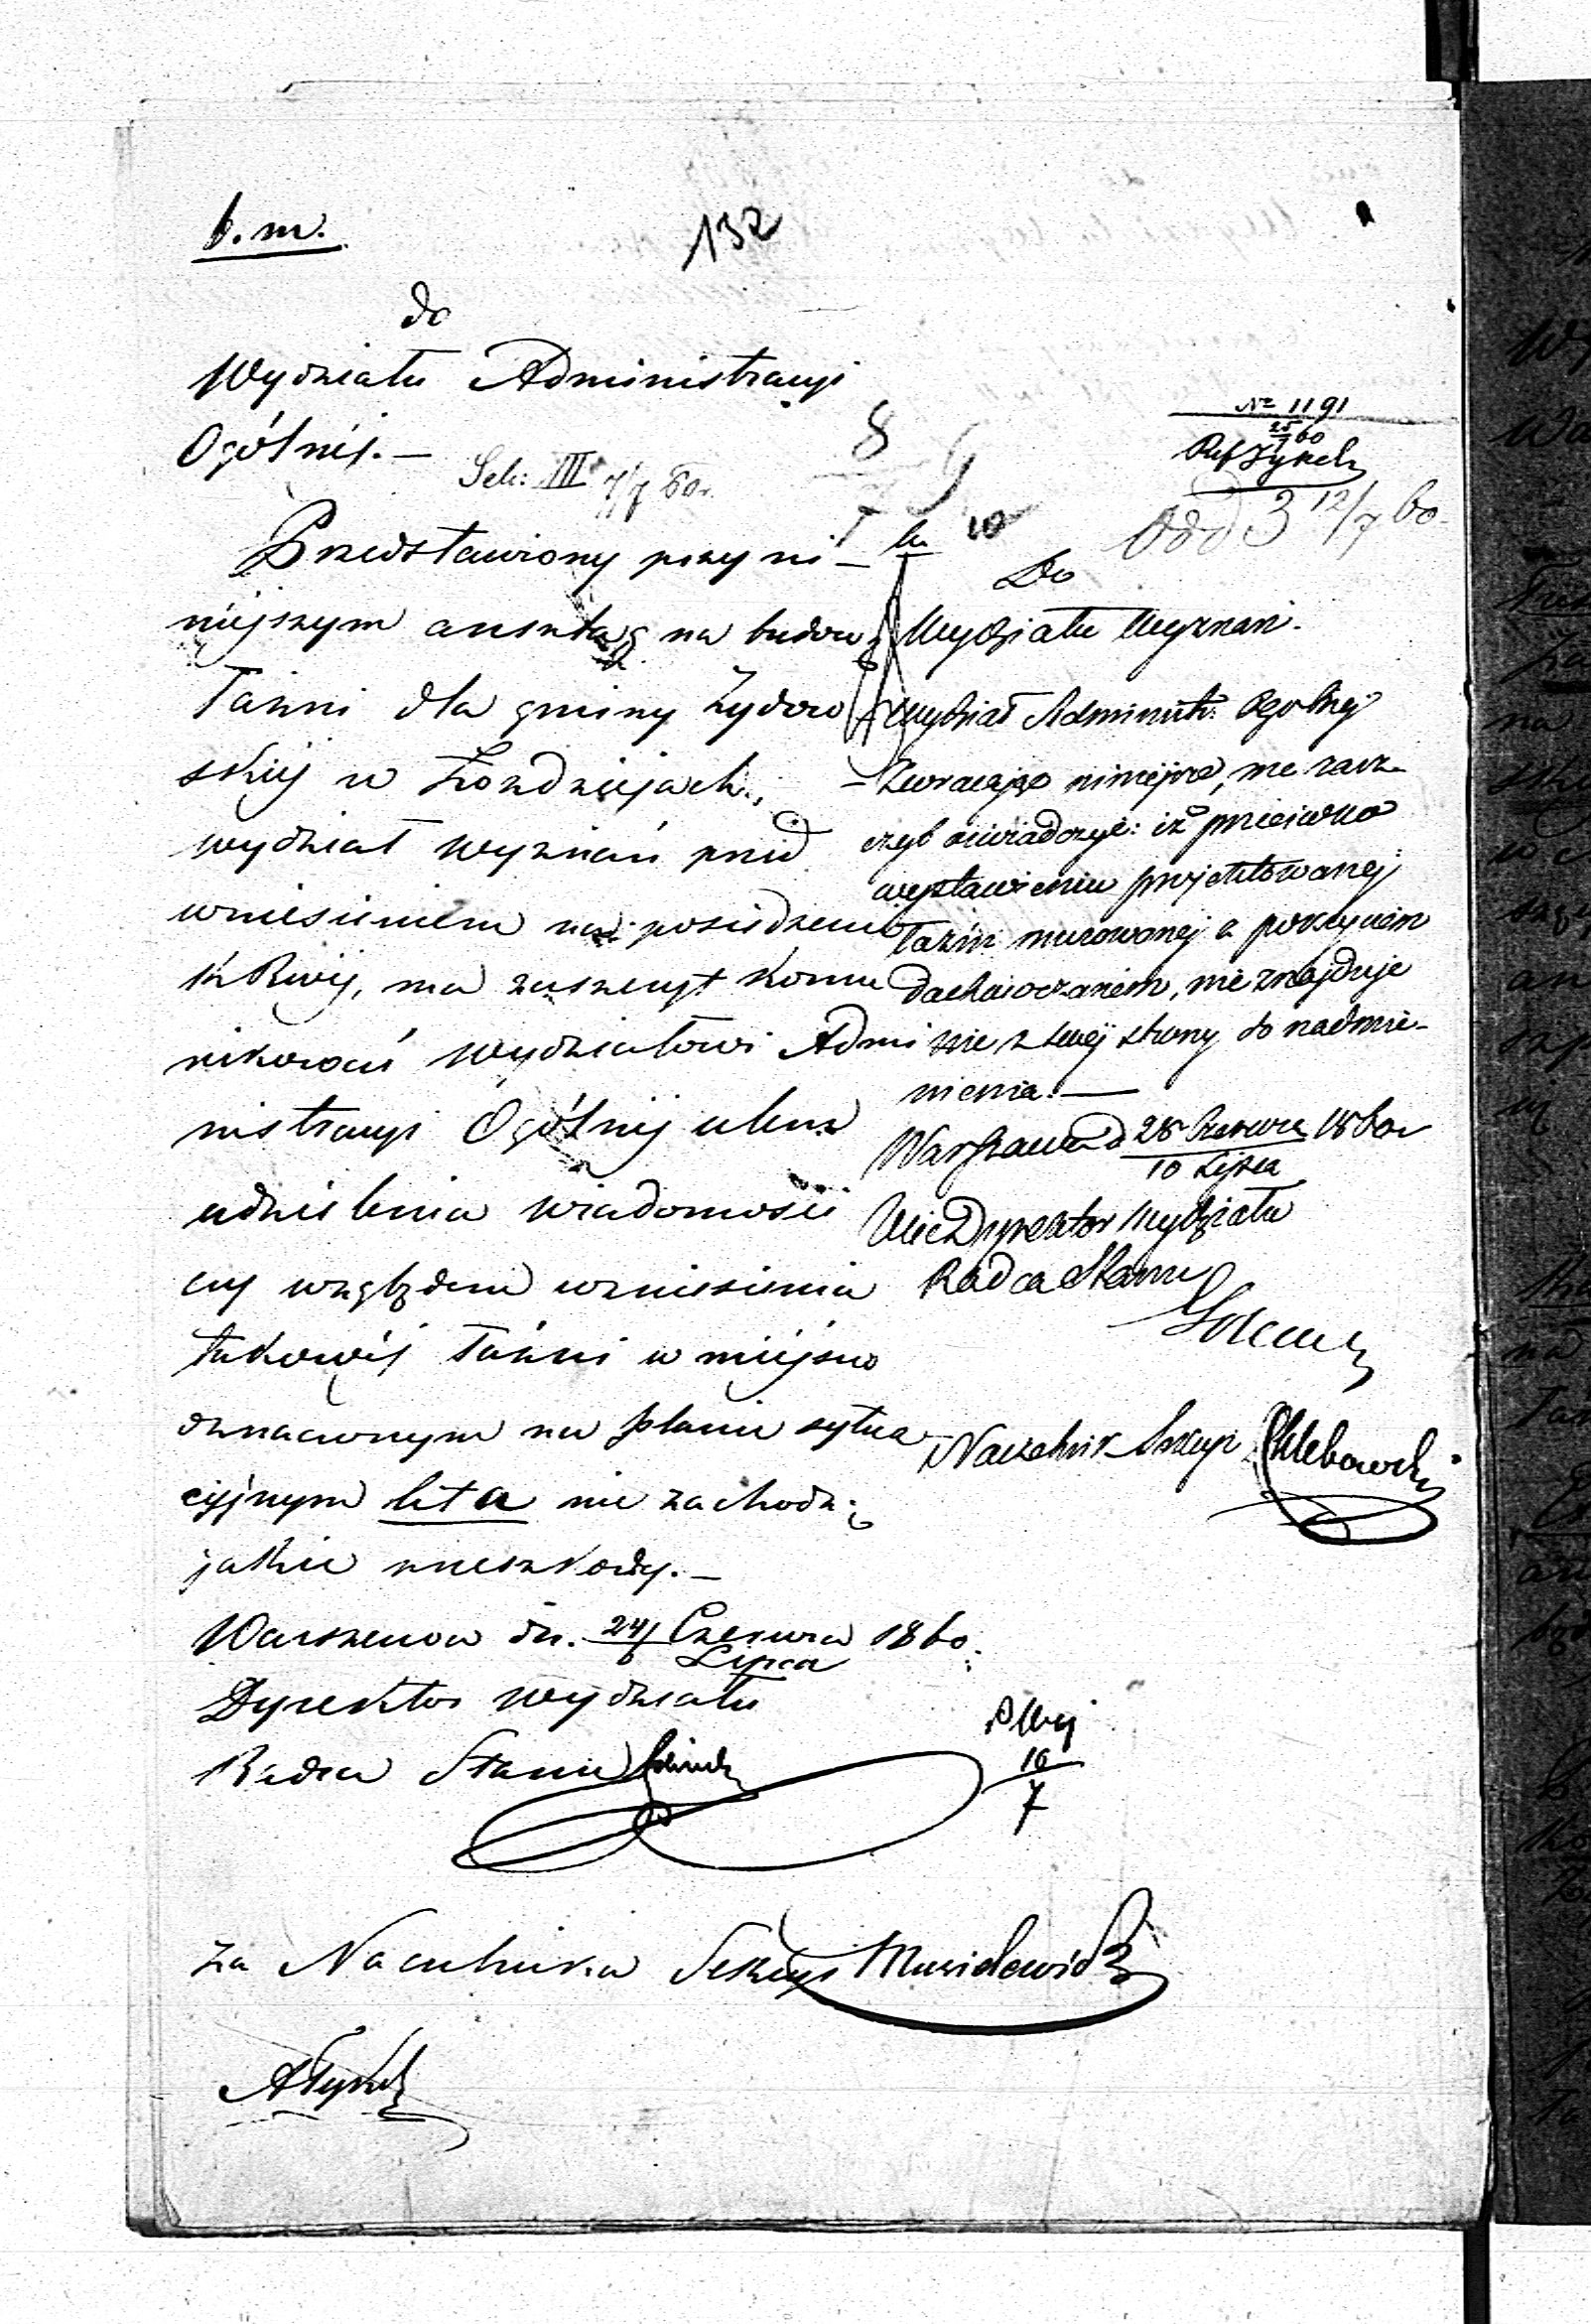 b. m.
132
do
Wydziału Administracyi
Ogólnéj. —
Sek: III 7/7 60.
Przedstawiony przy ni-
niejszym anszlag na budowę
łaźni dla gminy żydow
skiéj w Łozdziejach,
wydział wyznań przed
wniesieniem na posiedzenie
KRwéj, ma zaszczyt komu
nikować Wydziałowi Admi
nistracyi Ogólnéj celem
udzielenia wiadomości
czy względem wzniesienia
takowéj łaźni w miejscu
oznaczonym na planie sytua
cyjnym lit a nie zachodzą
jakie przeszkody. —
Warszawa dn. 24/6 Czerwca Lipca 1860.
Dyrektor Wydziału
Radca Stanu
za Naczelnika Sekcyi
№ 1191
25 60
Ref
Odd 3 12/7 60
8
9
10
Do
Wydziału Wyznań.
Wydział Administr: Ogólnej
zwracając niniejsze, ma zasz-
czyt oświadczyć: iż przeciwko
wystawieniu projektowanej
łaźni murowanej z pokryciem
dachówczaném, nie znajduje
nic z swej strony do nadmie-
nienia. —
Warszawa d 28 Czerwca 10 Lipca 1860 r
Vice Dyrektor Wydziału
Radca Stanu
Naczelnik Sekcyi Chlebowski
10
7